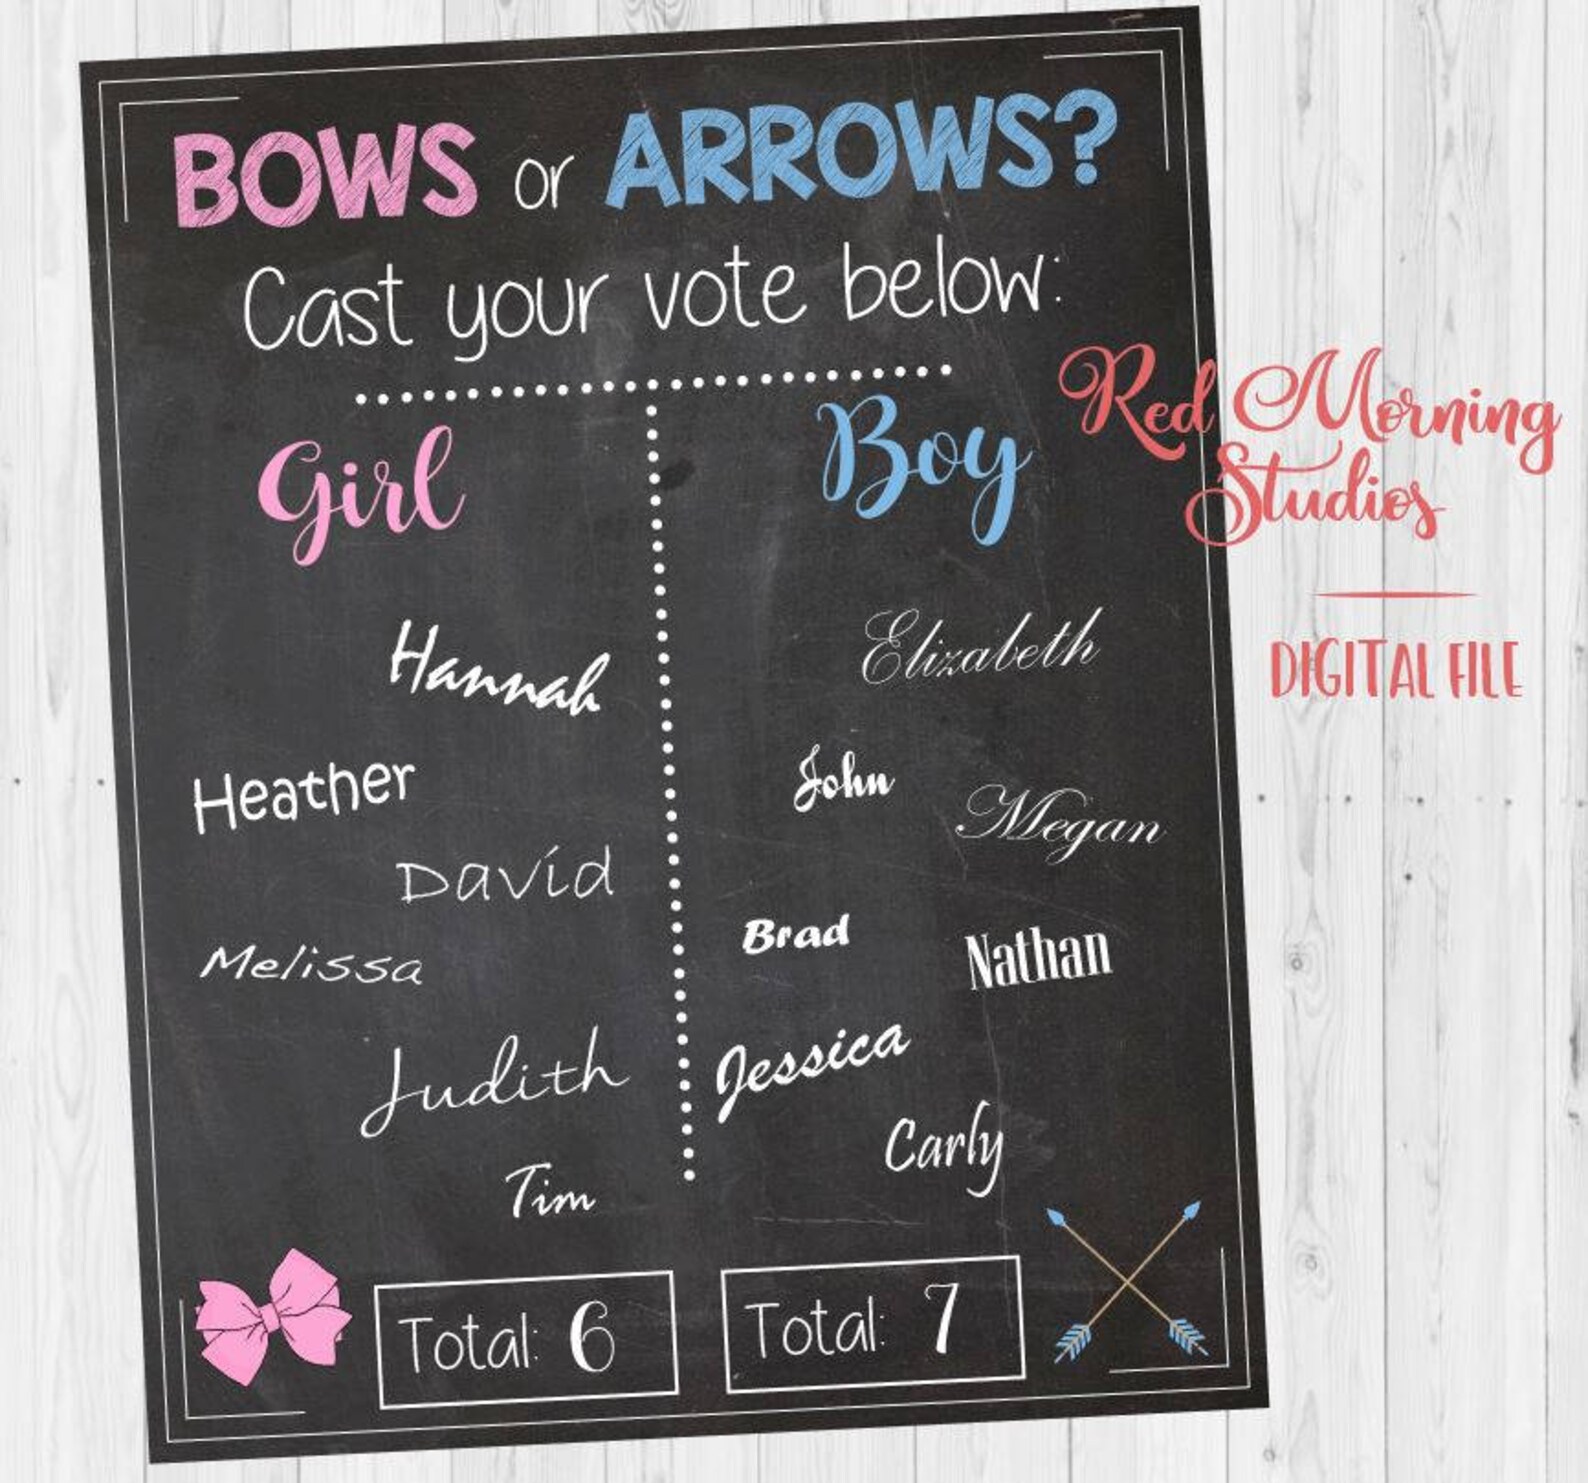 BOWS or ARROWS?
Cast your vote below:
Girl
Boy
Hannah
Heather
David
Melissa
Judith
Tim
Elizabeth
John
Megan
Brad
Nathan
Jessica
Carly
Total: 6
Total: 7
Red Morning
Studios
DIGITAL FILE